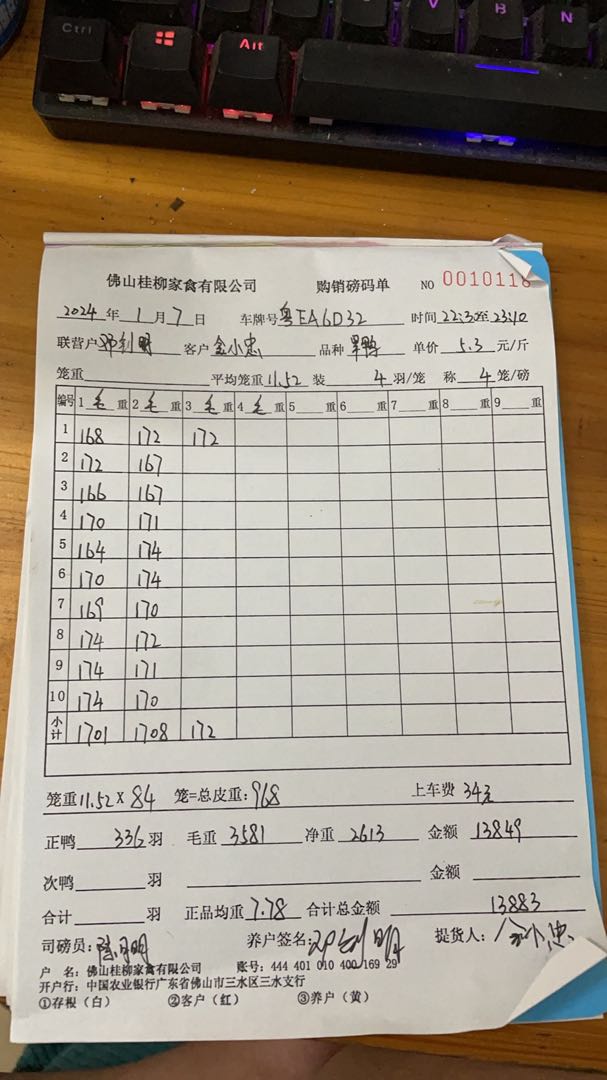 Ctrl Alt V B N
佛山桂柳家禽有限公司 购销磅码单 NO 0010118
2024年1月7日 车牌号 粤EA6D32 时间 22:30至23:10
联营户 邓利明 客户 金小忠 品种 单价 5.3 元/斤
笼重 平均笼重 11.52 装 4 羽/笼 称 4 笼/磅
编号 1 毛 重 2 毛 重 3 毛 重 4 毛 重 5 重 6 重 7 重 8 重 9 重
1 168 172 172
2 172 167
3 166 167
4 170 171
5 164 174
6 170 174
7 169 170
8 174 172
9 174 171
10 174 170
小计 1701 1708 172
笼重 11.52 × 84 笼=总皮重: 968 上车费 34元
正鸭 336 羽 毛重 3581 净重 2613 金额 13849
次鸭 羽 金额
合计 羽 正品均重 7.78 合计总金额 13883
司磅员: 养户签名: 邓利明 提货人: 金小忠
户 名: 佛山桂柳家禽有限公司 账号: 444 401 010 400 169 29
开户行: 中国农业银行广东省佛山市三水区三水支行
①存根（白） ②客户（红） ③养户（黄）